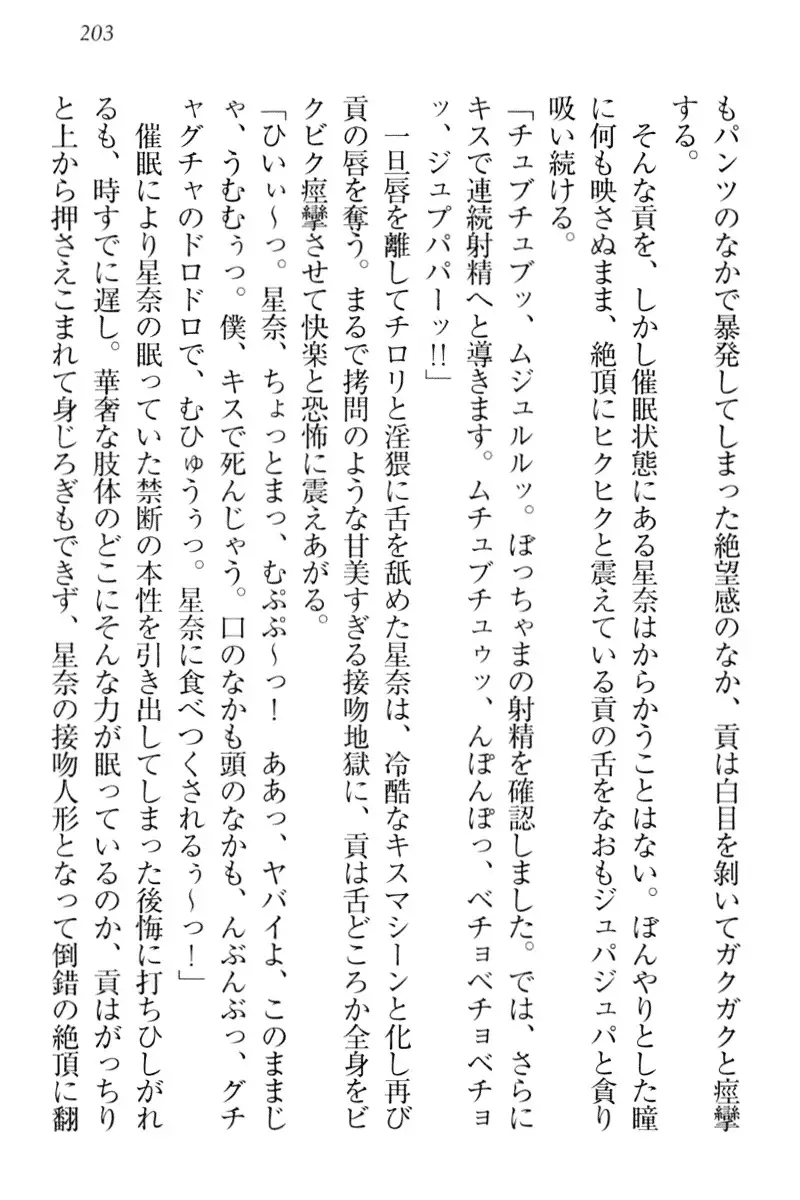 203
もパンツのなかで暴発してしまった絶望感のなか、貢は白目を剝いてガクガクと痙攣
する。
そんな貢を、しかし催眠状態にある星奈はからかうことはない。ぼんやりとした瞳
に何も映さぬまま、絶頂にヒクヒクと震えている貢の舌をなおもジュパジュパと貪り
吸い続ける。
「チュブチュブッ、ムジュルルッ。ぼっちゃまの射精を確認しました。では、さらに
キスで連続射精へと導きます。ムチュブチュゥッ、んぽんぽっ、ベチョベチョベチョ
ッ、ジュプパパーッ!!」
一旦唇を離してチロリと淫猥に舌を舐めた星奈は、冷酷なキスマシーンと化し再び
貢の唇を奪う。まるで拷問のような甘美すぎる接吻地獄に、貢は舌どころか全身をビ
クビク痙攣させて快楽と恐怖に震えあがる。
「ひいぃ～っ。星奈、ちょっとまっ、むぷぷ～っ！　ああっ、ヤバイよ、このままじ
ゃ、うむむぅっ。僕、キスで死んじゃう。口のなかも頭のなかも、んぶんぶっ、グチ
ャグチャのドロドロで、むひゅうぅっ。星奈に食べつくされるぅ～っ！」
催眠により星奈の眠っていた禁断の本性を引き出してしまった後悔に打ちひしがれ
るも、時すでに遅し。華奢な肢体のどこにそんな力が眠っているのか、貢はがっちり
と上から押さえこまれて身じろぎもできず、星奈の接吻人形となって倒錯の絶頂に翻